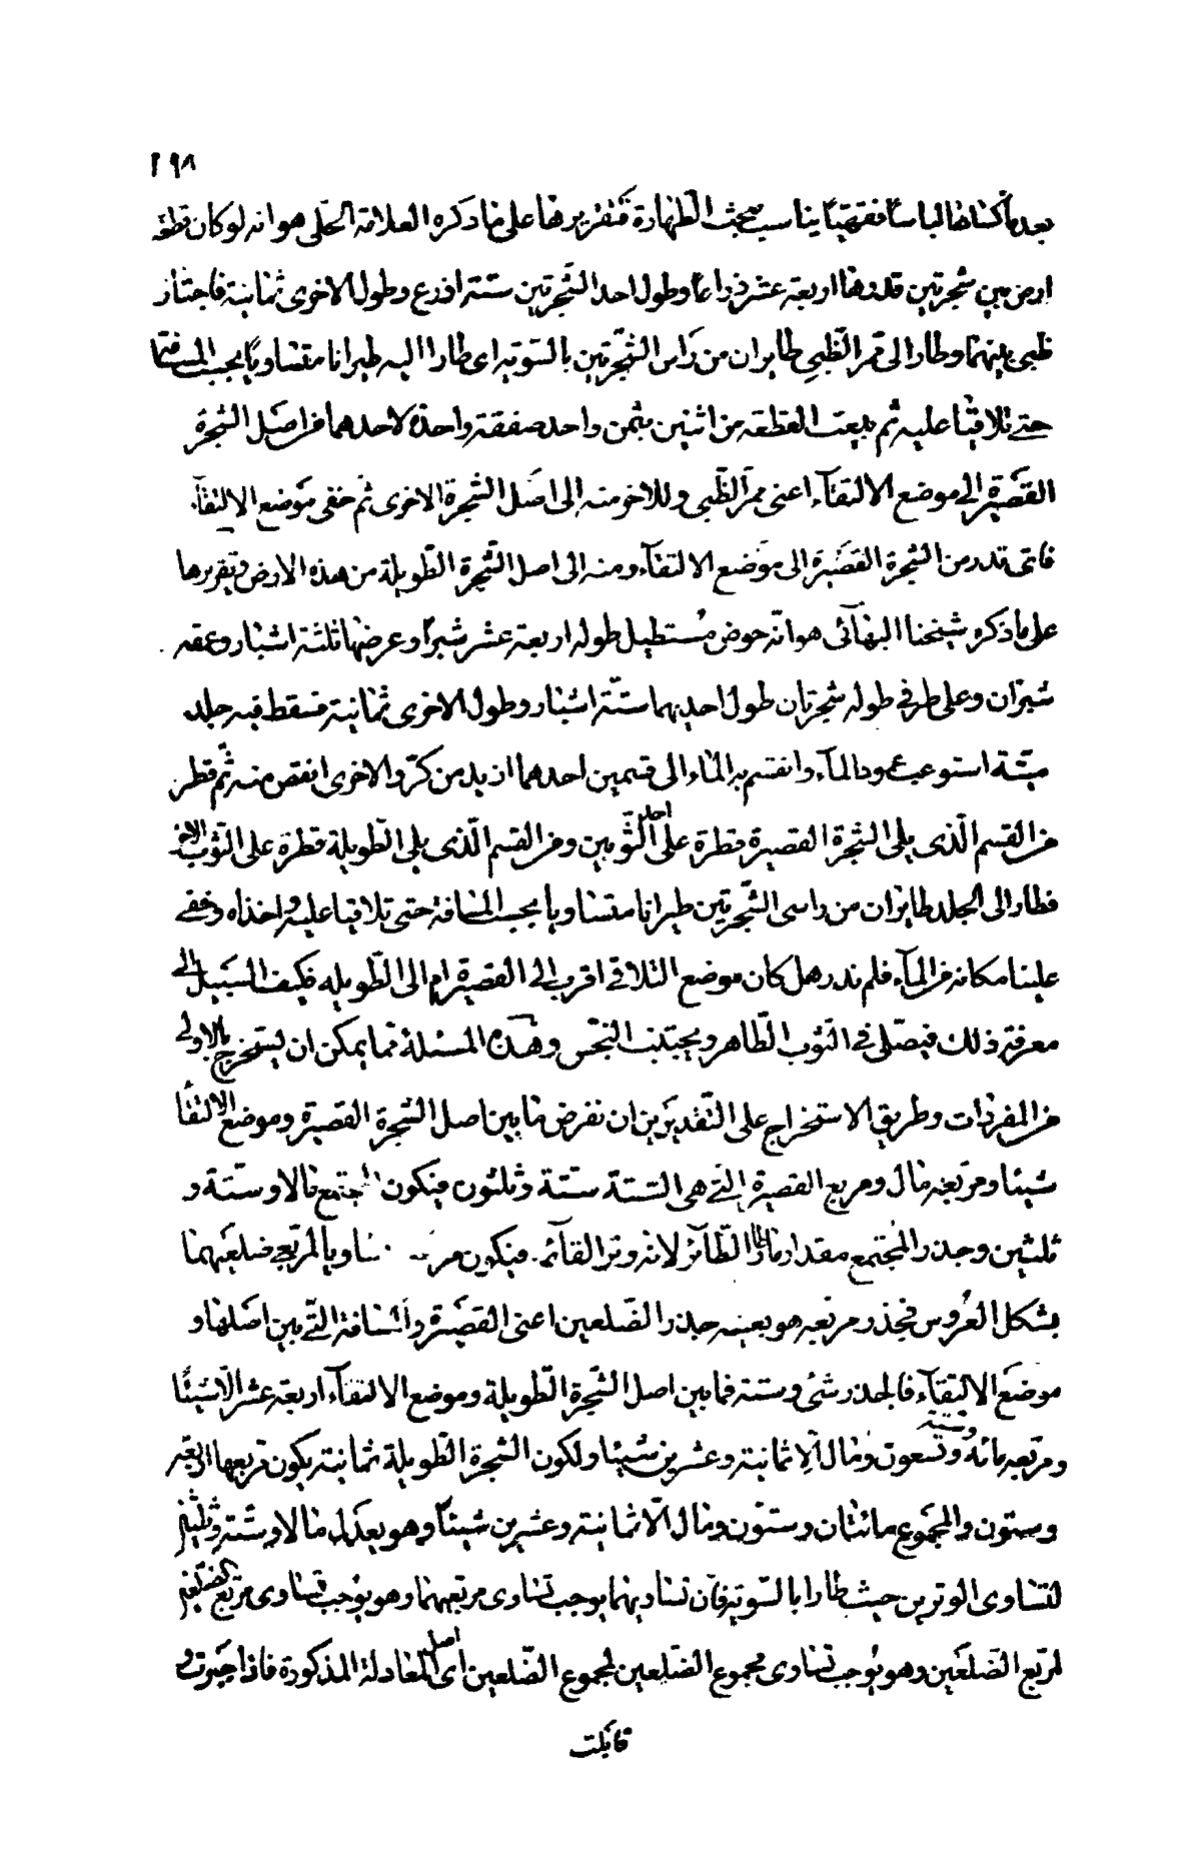 ٢٩٨
بعد ما كساها لباسا فقهيّا يناسب مبحث الطّهارة فتقريرها على ما ذكره العلامة الحلّى هو انه لو كان قطعة
ارض بين شجرتين قدرها اربعة عشر ذراعا وطول احد الشّجرتين ستّة اذرع وطول الاخرى ثمانية فاجتاز
ظبى بينهما وطار الى ممر الظّبى طايران من راس الشّجرتين بالسّويّة اى طارا اليه طيرانا متساويا بحسب المسافة
حتى تلاقيا عليه ثم بيعت القطعة من اثنين بثمن واحد صفقة واحدة لاحدهما من اصل الشجرة
القصيرة الى موضع الالتقاء اعنى ممرّ الظّبى وللاخر منه الى اصل الشجرة الاخرى ثم خفى موضع الالتقاء
فاى قدر من الشجرة القصيرة الى موضع الالتقاء ومنه الى اصل الشّجرة الطّويلة من هذه الارض وتقريرها
على ما ذكره شيخنا البهائى هو انّه حوض مستطيل طوله اربعة عشر شبرا وعرضها ثلثة اشبار وعمقه
شبران وعلى طرفى طوله شجرتان طول احديهما ستّة اشبار وطول الاخرى ثمانية فسقط فيه جلد
ميتة استوعب عمود الماء وانقسم به الماء الى قسمين احدهما ازيد من كرّ والاخرى انقص منه ثمّ قطر
من القسم الّذى يلى الشجرة القصيرة قطرة على احد الثّوبين ومن القسم الّذى يلى الطّويلة قطرة على الثّوب الاخر
فطار الى الجلد طايران من راسى الشّجرتين طيرانا متساويا بحسب المسافة حتى تلاقيا عليه واخذاه وخفى
علينا مكانه من الماء فلم ندر هل كان موضع التلاقى اقرب الى القصيرة ام الى الطّويله فكيف السّبيل الى
معرفة ذلك فيصلّى فى الثّوب الطّاهر ويجتنب النّجس وهذه المسئلة ممّا يمكن ان يستخرج بالاولى
من المفردات وطريق الاستخراج على التّقديرين ان نفرض ما بين اصل الشجرة القصيرة وموضع الالتقا
شيئا ومربّعه مال ومربع القصيرة التى هى السّتة ستة وثلثون فيكون المجتمع مالا وستة و
ثلثين وجذر المجتمع مقدار ما طار الطّائر لانه وتر القائمة فيكون مربعه مساويا لمربّعى ضلعيهما
بشكل العروس فجذر مربّعه هو بعينه جذر الضّلعين اعنى القصيرة والمسافة التى بين اصلها و
موضع الالتقاء فالجذر شئ وستة فما بين اصل الشّجرة الطّويلة وموضع الالتقاء اربعة عشر الّا شيئًا
ومربّعه مائة وستة وتسعون ومال الّا ثمانية وعشرين شيئا ولكون الشّجرة الطّويلة ثمانية يكون مربعها اربعة
وستون والمجموع مائتان وستّون ومال الّا ثمانية وعشرين شيئًا وهو يعدل مالا وستّة وثلثين
لتساوى الوترين حيث طارا بالسّويّة فانّ تساويهما يوجب تساوى مربعيهما وهو يوجب تساوى مربّع الضلعين
لمربّع الضّلعين وهو يوجب تساوى مجموع الضّلعين لمجموع الضّلعين اى اصل المعادلة المذكورة فاذا جبرت و
قابلت